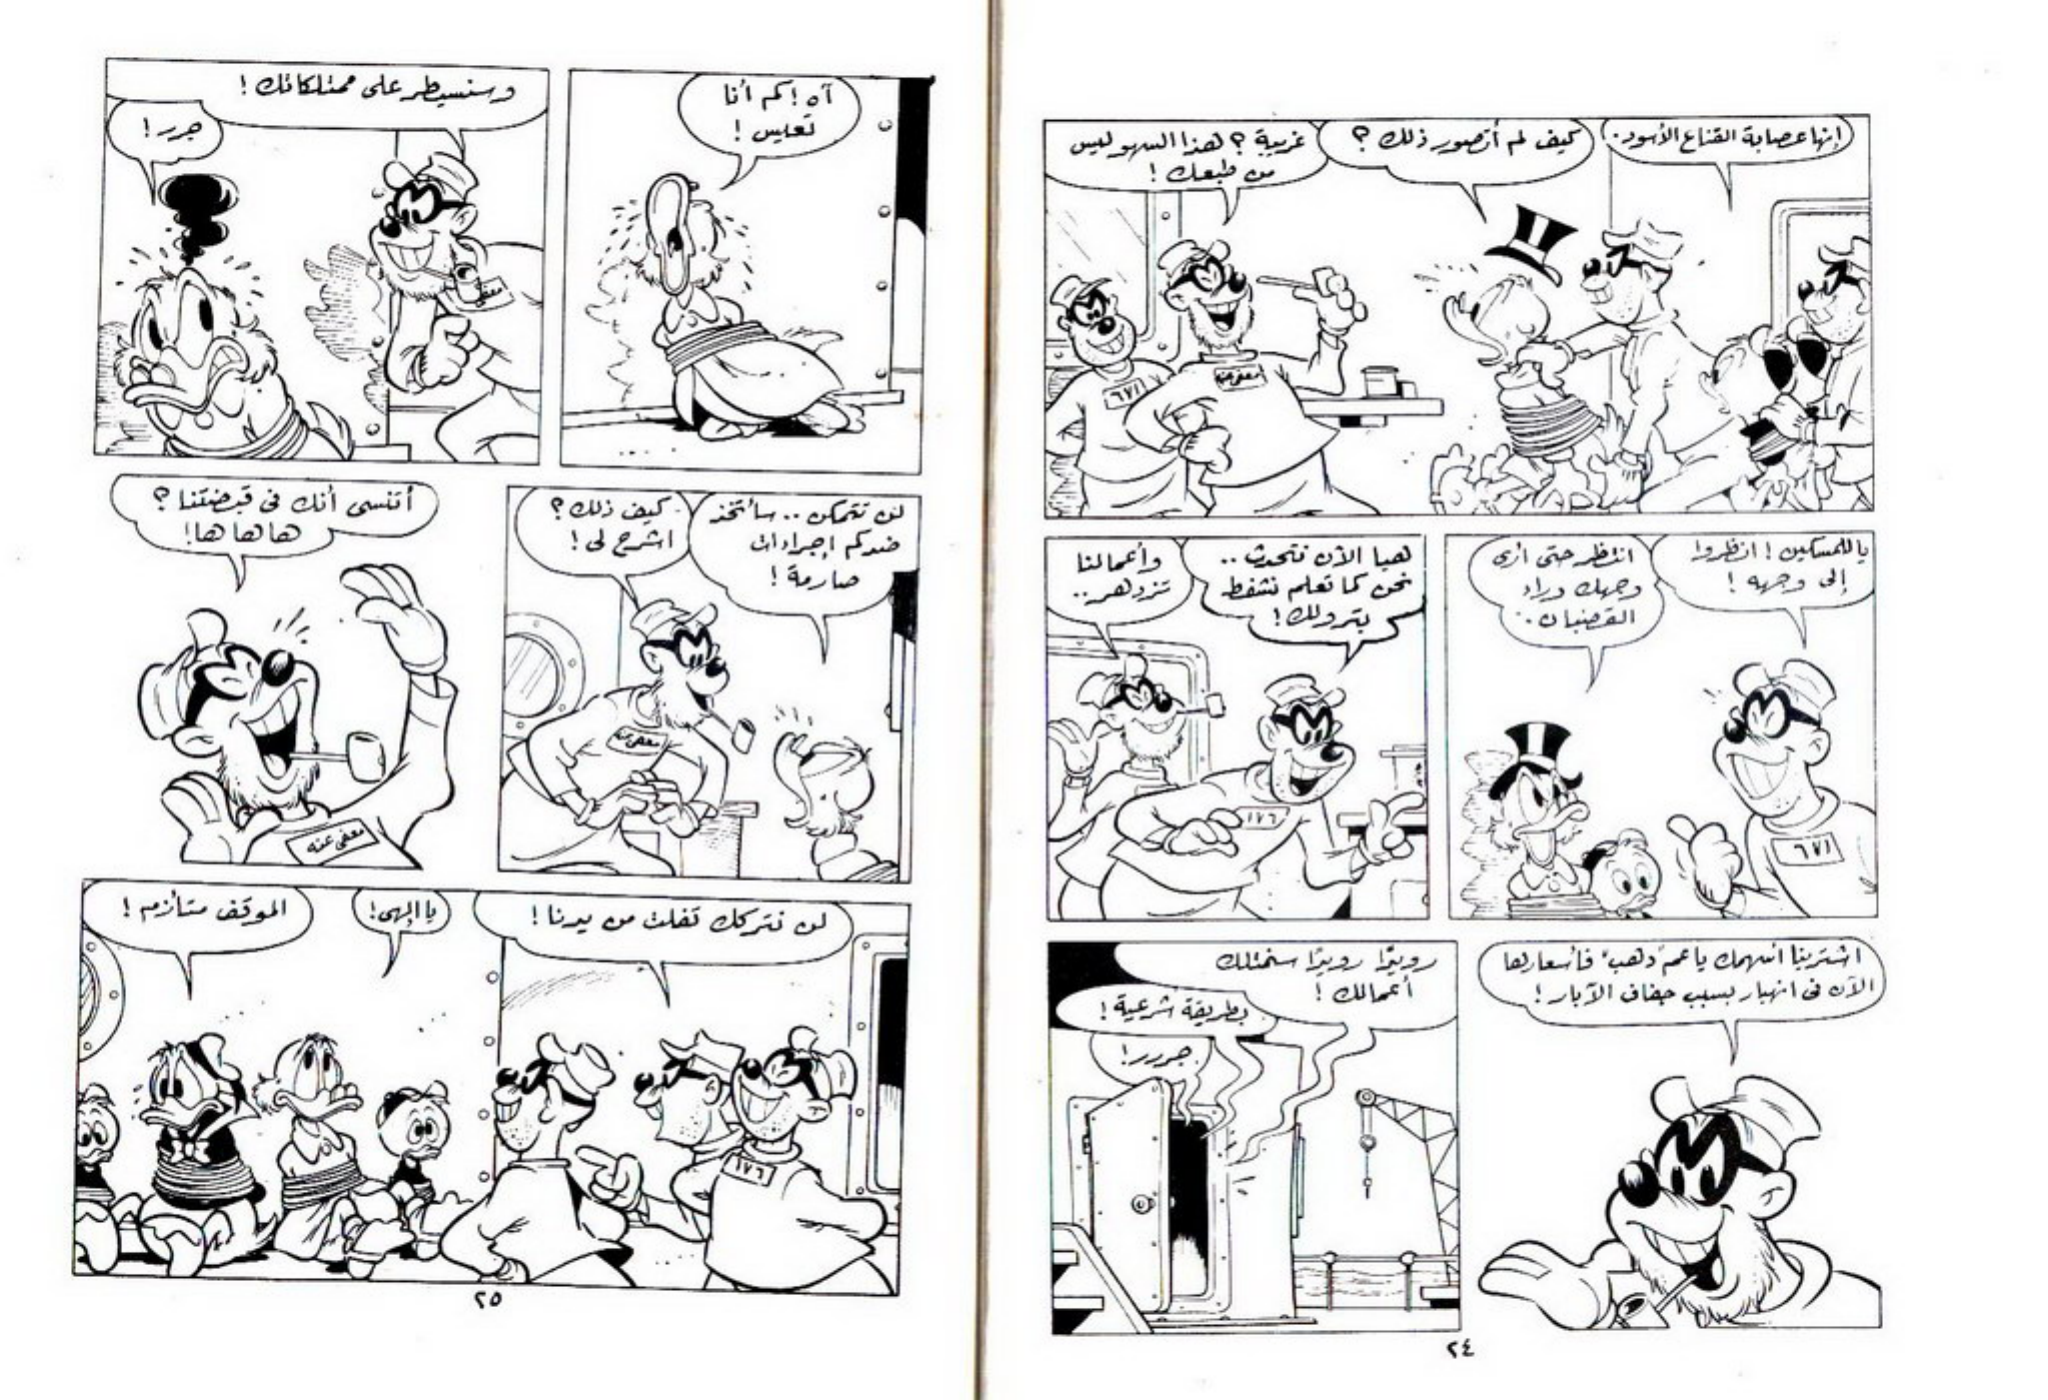 إنها عصابة القناع الأسود.
كيف لم أتصور ذلك ؟
غريبة ؟ هذا السهو ليس
من طبعك !
معفى عنه
٦٧١
يا للمسكين ! انظروا
إلى وجهه !
انتظر حتى أرى
وجهك وراء
القضبان..
٦٧١
هيا الآن نتحدث ..
نحن كما تعلم نشفط
بترولك !
وأعمالنا
تزدهر..
١٧٦
اشترينا أسهمك يا عم "دهب" فأسعارها
الآن فى انهيار بسبب جفاف الآبار !
رويدًا رويدًا سنمتلك
أعمالك !
بطريقة شرعية !
جررر !
٢٤
آه ! كم أنا
تعيس !
وسنسيطر على ممتلكاتك !
جرر !
معفى
لن تتمكن .. سأتخذ
ضدكم إجراءات
صارمة !
كيف ذلك ؟
اشرح لى !
معفى عنه
أتنسى أنك فى قبضتنا ؟
ها ها ها !
معفى عنه
لن نتركك تفلت من يدنا !
يا إلهى !
الموقف متأزم !
١٧٦
٢٥